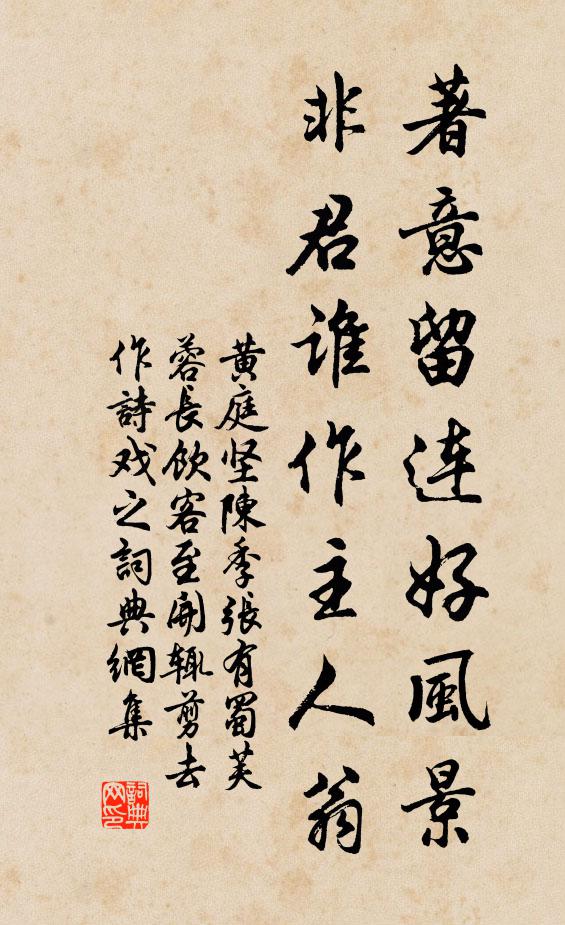 著意留连好風景
非君谁作主人翁
黄庭坚陳季張有蜀芙
蓉長飲客至開辄剪去
作詩戏之詞典網集
詞典
网印